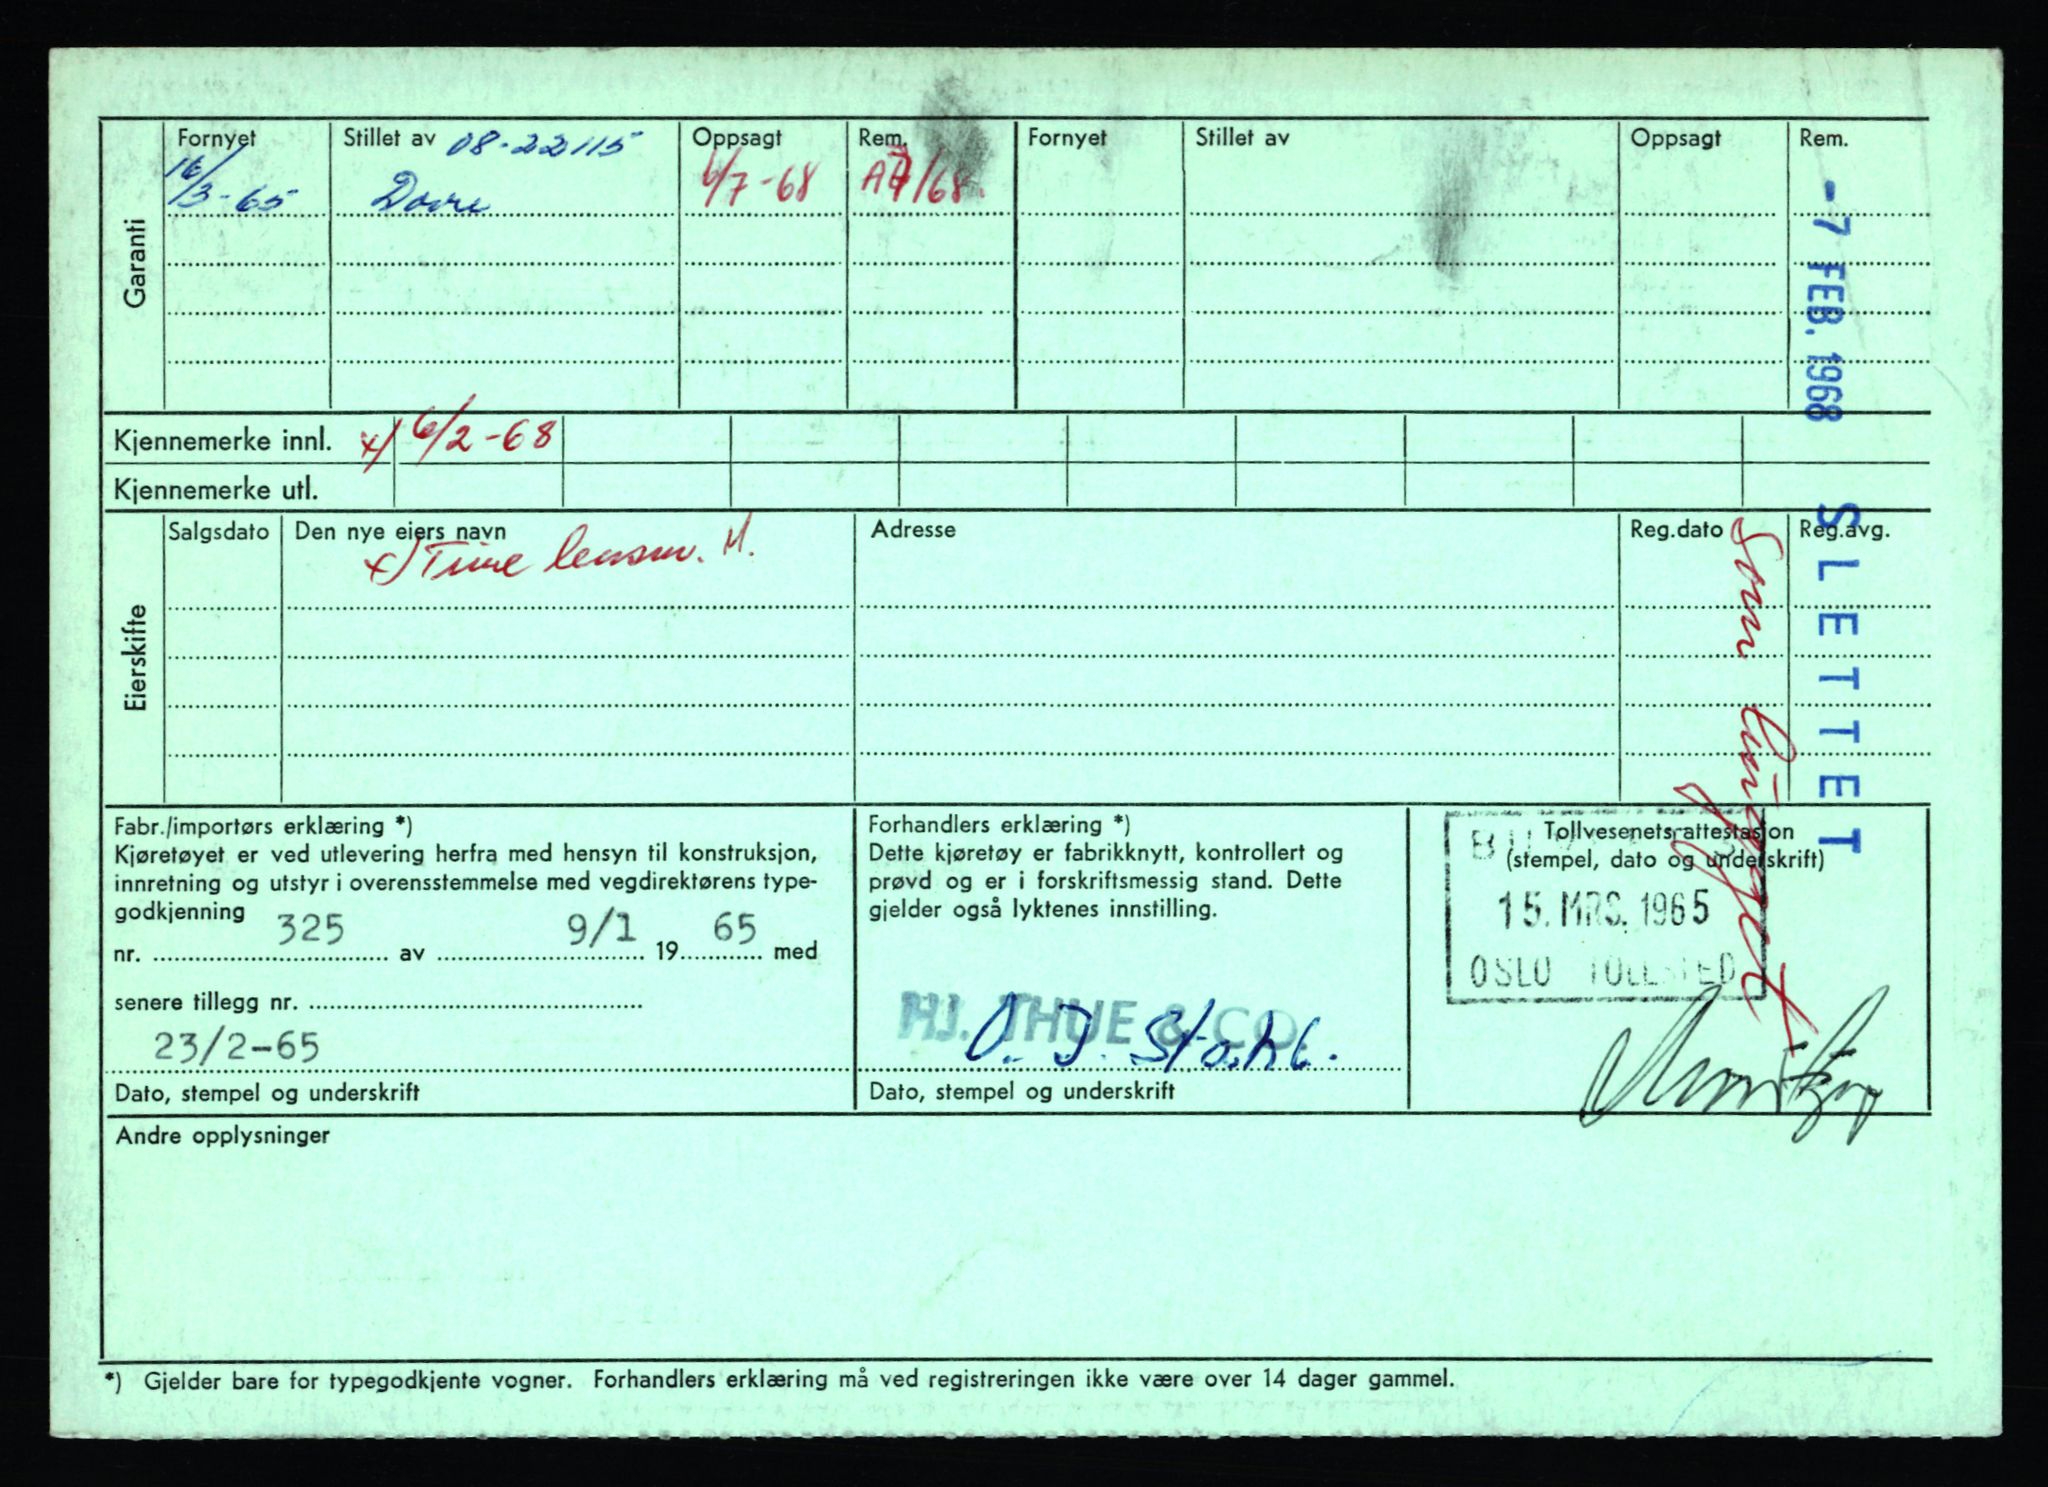 Garanti
Fornyet Stillet av 08-22115 Oppsagt Rem. Fornyet Stillet av Oppsagt Rem.
16/3-65 Dovre 6/7-68 A7/68.
-7 FEB. 1968 SLETTET
Kjennemerke innl. x) 6/2-68
Kjennemerke utl.
Eierskifte
Salgsdato Den nye eiers navn Adresse Reg.dato Reg.avg.
x) Time lensm. M.
Som
Fabr./importørs erklæring *)
Kjøretøyet er ved utlevering herfra med hensyn til konstruksjon,
innretning og utstyr i overensstemmelse med vegdirektørens type-
godkjenning
nr. 325 av 9/1 19 65 med
senere tillegg nr.
23/2-65
Dato, stempel og underskrift
Forhandlers erklæring *)
Dette kjøretøy er fabrikknytt, kontrollert og
prøvd og er i forskriftsmessig stand. Dette
gjelder også lyktenes innstilling.
HJ. THUE & CO.
Dato, stempel og underskrift
Tollvesenets attestasjon
(stempel, dato og underskrift)
15. MRS. 1965
OSLO TOLLSTED
Andre opplysninger
*) Gjelder bare for typegodkjente vogner. Forhandlers erklæring må ved registreringen ikke være over 14 dager gammel.